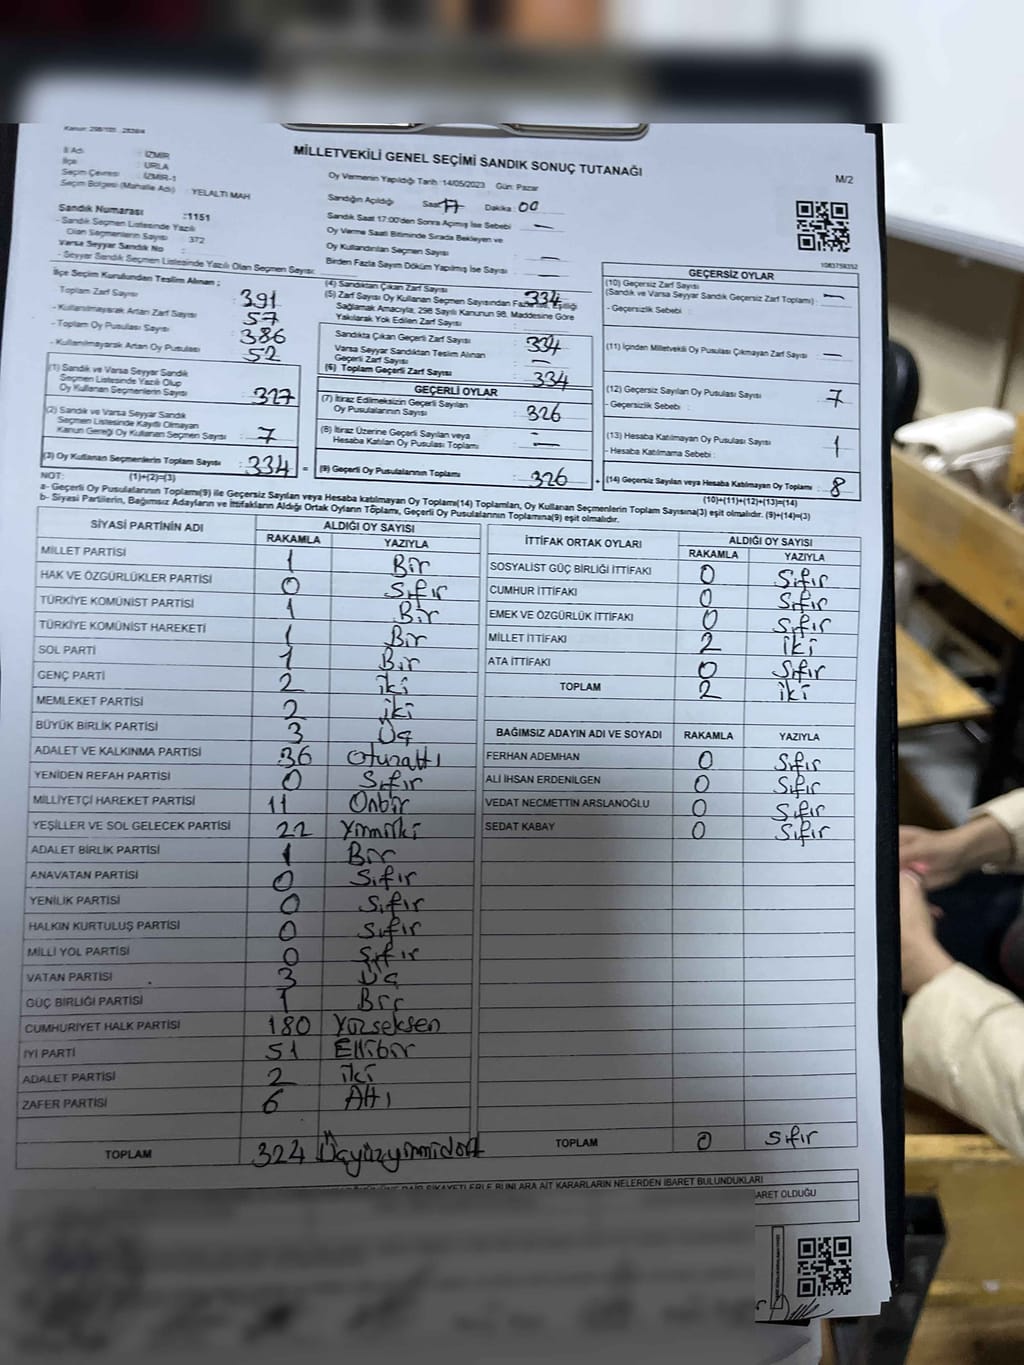 Kanun: 298/105 , 2839/4
MİLLETVEKİLİ GENEL SEÇİMİ SANDIK SONUÇ TUTANAĞI
M/2
İl Adı : İZMİR
İlçe : URLA
Seçim Çevresi : İZMİR-1
Seçim Bölgesi (Mahalle Adı) : YELALTI MAH
Sandık Numarası :1151
- Sandık Seçmen Listesinde Yazılı
Olan Seçmenlerin Sayısı : 372
Varsa Seyyar Sandık No :
- Seyyar Sandık Seçmen Listesinde Yazılı Olan Seçmen Sayısı:
Oy Vermenin Yapıldığı Tarih :14/05/2023 Gün: Pazar
Sandığın Açıldığı Saat: 17 Dakika : 00
Sandık Saat 17:00'den Sonra Açımış İse Sebebi : —
Oy Verme Saati Bitiminde Sırada Bekleyen ve
Oy Kullandırılan Seçmen Sayısı : —
Birden Fazla Sayım Döküm Yapılmış İse Sayısı : —
1083758352
İlçe Seçim Kurulundan Teslim Alınan ;
Toplam Zarf Sayısı : 391
- Kullanılmayarak Artan Zarf Sayısı : 57
- Toplam Oy Pusulası Sayısı : 386
- Kullanılmayarak Artan Oy Pusulası : 52
(1) Sandık ve Varsa Seyyar Sandık
Seçmen Listesinde Yazılı Olup
Oy Kullanan Seçmenlerin Sayısı : 327
(2) Sandık ve Varsa Seyyar Sandık
Seçmen Listesinde Kayıtlı Olmayan
Kanun Gereği Oy Kullanan Seçmen Sayısı : 7
(3) Oy Kullanan Seçmenlerin Toplam Sayısı : 334
(1)+(2)=(3)
(4) Sandıktan Çıkan Zarf Sayısı : 334
(5) Zarf Sayısı Oy Kullanan Seçmen Sayısından Fazla İse, Eşitliği
Sağlamak Amacıyla, 298 Sayılı Kanunun 98. Maddesine Göre
Yakılarak Yok Edilen Zarf Sayısı :
Sandıkta Çıkan Geçerli Zarf Sayısı : 334
Varsa Seyyar Sandıktan Teslim Alınan
Geçerli Zarf Sayısı : —
(6) Toplam Geçerli Zarf Sayısı : 334
GEÇERLİ OYLAR
(7) İtiraz Edilmeksizin Geçerli Sayılan
Oy Pusulalarının Sayısı : 326
(8) İtiraz Üzerine Geçerli Sayılan veya
Hesaba Katılan Oy Pusulası Toplamı : —
= (9) Geçerli Oy Pusulalarının Toplamı : 326
GEÇERSİZ OYLAR
(10) Geçersiz Zarf Sayısı
(Sandık ve Varsa Seyyar Sandık Geçersiz Zarf Toplamı) : —
- Geçersizlik Sebebi :
(11) İçinden Milletvekili Oy Pusulası Çıkmayan Zarf Sayısı : —
(12) Geçersiz Sayılan Oy Pusulası Sayısı : 7
- Geçersizlik Sebebi :
(13) Hesaba Katılmayan Oy Pusulası Sayısı : 1
- Hesaba Katılmama Sebebi :
+ (14) Geçersiz Sayılan veya Hesaba Katılmayan Oy Toplamı : 8
(10)+(11)+(12)+(13)=(14)
NOT:
a- Geçerli Oy Pusulalarının Toplamı(9) ile Geçersiz Sayılan veya Hesaba katılmayan Oy Toplamı(14) Toplamları, Oy Kullanan Seçmenlerin Toplam Sayısına(3) eşit olmalıdır. (9)+(14)=(3)
b- Siyasi Partilerin, Bağımsız Adayların ve İttifakların Aldığı Ortak Oyların Toplamı, Geçerli Oy Pusulalarının Toplamına(9) eşit olmalıdır.
SİYASİ PARTİNİN ADI ALDIĞI OY SAYISI
RAKAMLA YAZIYLA
MİLLET PARTİSİ 1 Bir
HAK VE ÖZGÜRLÜKLER PARTİSİ 0 Sıfır
TÜRKİYE KOMÜNİST PARTİSİ 1 Bir
TÜRKİYE KOMÜNİST HAREKETİ 1 Bir
SOL PARTİ 1 Bir
GENÇ PARTİ 2 iki
MEMLEKET PARTİSİ 2 iki
BÜYÜK BİRLİK PARTİSİ 3 Üç
ADALET VE KALKINMA PARTİSİ 36 Otuzaltı
YENİDEN REFAH PARTİSİ 0 Sıfır
MİLLİYETÇİ HAREKET PARTİSİ 11 Onbir
YEŞİLLER VE SOL GELECEK PARTİSİ 22 Yirmiiki
ADALET BİRLİK PARTİSİ 1 Bir
ANAVATAN PARTİSİ 0 Sıfır
YENİLİK PARTİSİ 0 Sıfır
HALKIN KURTULUŞ PARTİSİ 0 Sıfır
MİLLİ YOL PARTİSİ 0 Sıfır
VATAN PARTİSİ 3 Üç
GÜÇ BİRLİĞİ PARTİSİ 1 Bir
CUMHURİYET HALK PARTİSİ 180 Yüzseksen
İYİ PARTİ 51 Ellibir
ADALET PARTİSİ 2 iki
ZAFER PARTİSİ 6 Altı
TOPLAM 324 Üçyüzyirmidört
İTTİFAK ORTAK OYLARI ALDIĞI OY SAYISI
RAKAMLA YAZIYLA
SOSYALİST GÜÇ BİRLİĞİ İTTİFAKI 0 Sıfır
CUMHUR İTTİFAKI 0 Sıfır
EMEK VE ÖZGÜRLÜK İTTİFAKI 0 Sıfır
MİLLET İTTİFAKI 2 iki
ATA İTTİFAKI 0 Sıfır
TOPLAM 2 iki
BAĞIMSIZ ADAYIN ADI VE SOYADI RAKAMLA YAZIYLA
FERHAN ADEMHAN 0 Sıfır
ALİ İHSAN ERDENİLGEN 0 Sıfır
VEDAT NECMETTİN ARSLANOĞLU 0 Sıfır
SEDAT KABAY 0 Sıfır
TOPLAM 0 Sıfır
DAİR ŞİKAYETLERLE BUNLARA AİT KARARLARIN NELERDEN İBARET BULUNDUKLARI
ARET OLDUĞU